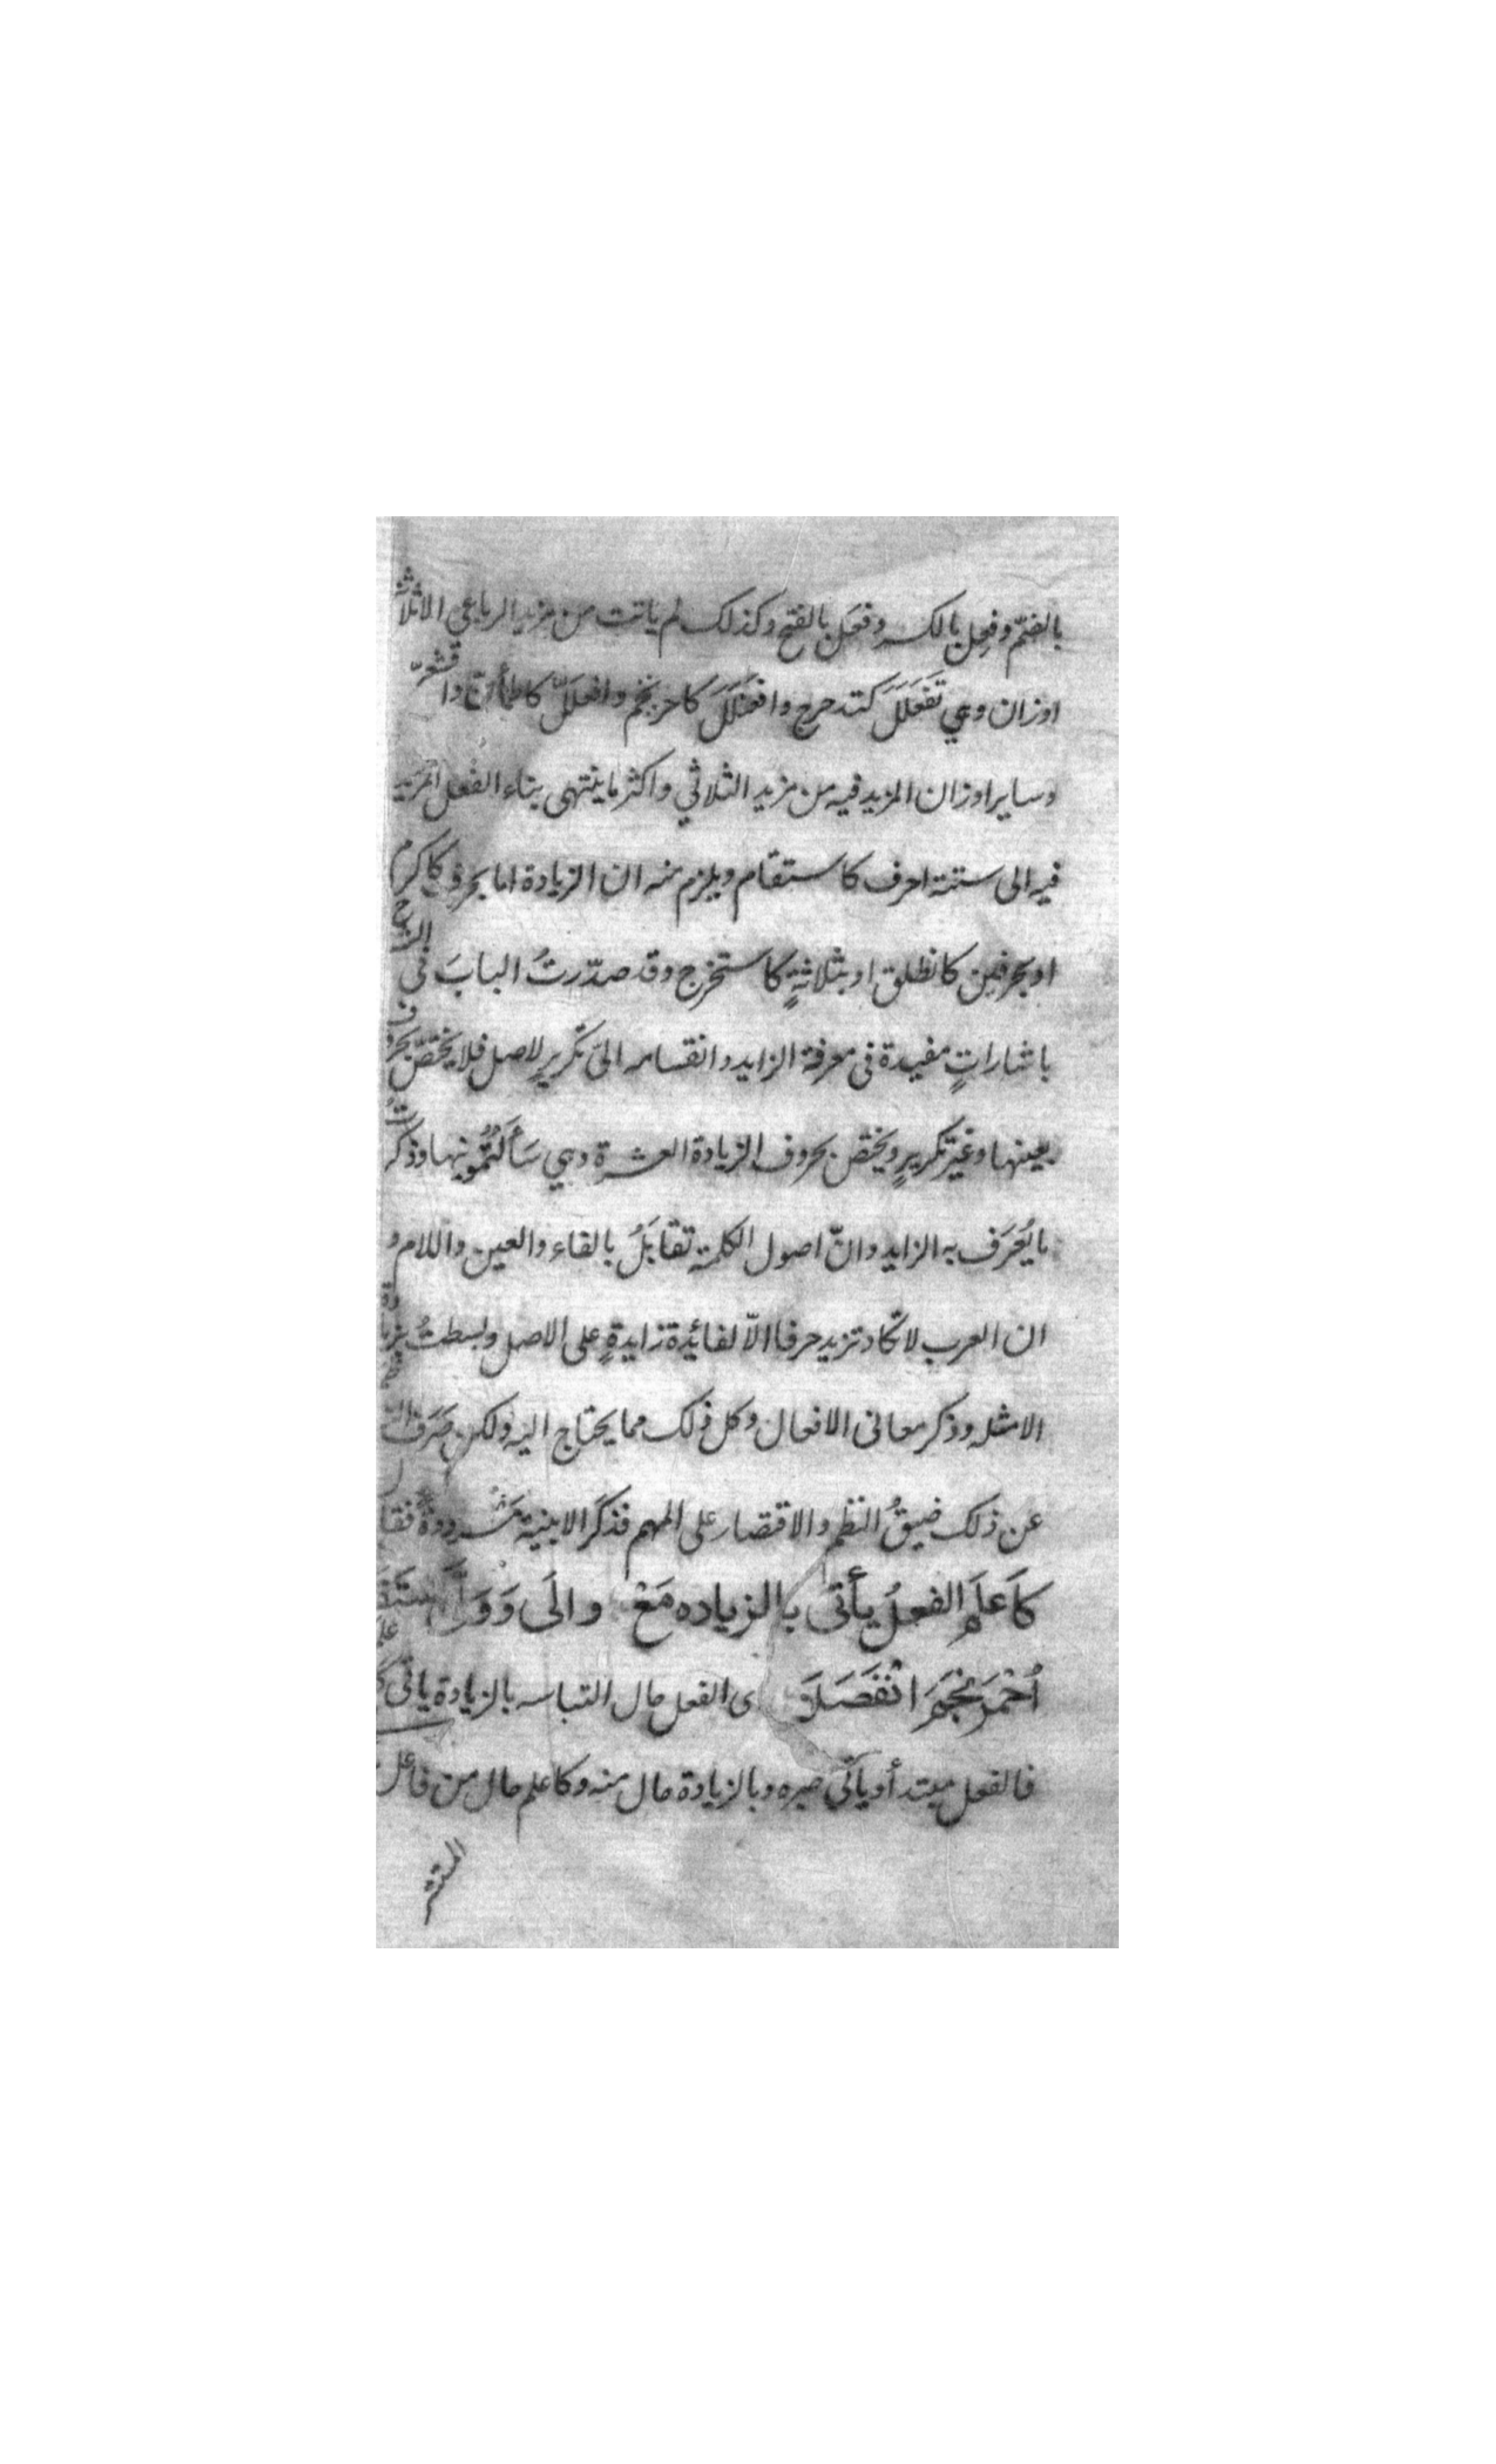 بالضمّ وفعِل بالكسر وفعَل بالفتح وكذلك لم يات من مزيد الرباعي الا ثلاثة
اوزان وهي تَفَعلَلَ كتدحرج وافعَنلَلَ كاحرنجم وافعلَلّ كاطمأنّ واقشعرّ
وساير اوزان المزيد فيه من مزيد الثلاثي واكثر ما ينتهى بناء الفعل المزيد
فيه الى ستة احرف كاستقام ويلزم منه ان الزيادة اما بحرف كاكرم
او بحرفين كانطلق او بثلاثةٍ كاستخرج وقد صدّرتُ البابَ فى الشرح
باشاراتٍ مفيدة فى معرفة الزايد وانقسامه الىّ تكريرٍ لاصل فلا يختصّ بحروف
بعينها وغير تكريرٍ ويختصّ بحروف الزيادة العشرة وهي سَأَلتُمُونيها وذكرتُ
ما يُعرَف به الزايد وانّ اصول الكلمة تقابَلُ بالفاء والعين واللام و
ان العرب لا تكاد تزيد حرفا الاّ لفائدة زايدةٍ على الاصل وبسطتُ بزيادة
الامثله وذكر معانى الافعال وكل ذلك مما يحتاج اليه ولكن صَرَفَ
عن ذلك ضيقُ النظم والاقتصار على المهم فذكر الابنية مَسرودةً فقال
كَاَعلَمَ الفعلُ يأتى بالزياده مَعْ والَى وَوَلَّى استَقَ
اُحْمَرَنْجَمَ انْفَصَلَ ى الفعل حال التباسه بالزيادة ياتى
فالفعل مبتدأ وياتى خبره وبالزيادة حال منه وكاعلم حال من فاعل
المستتر